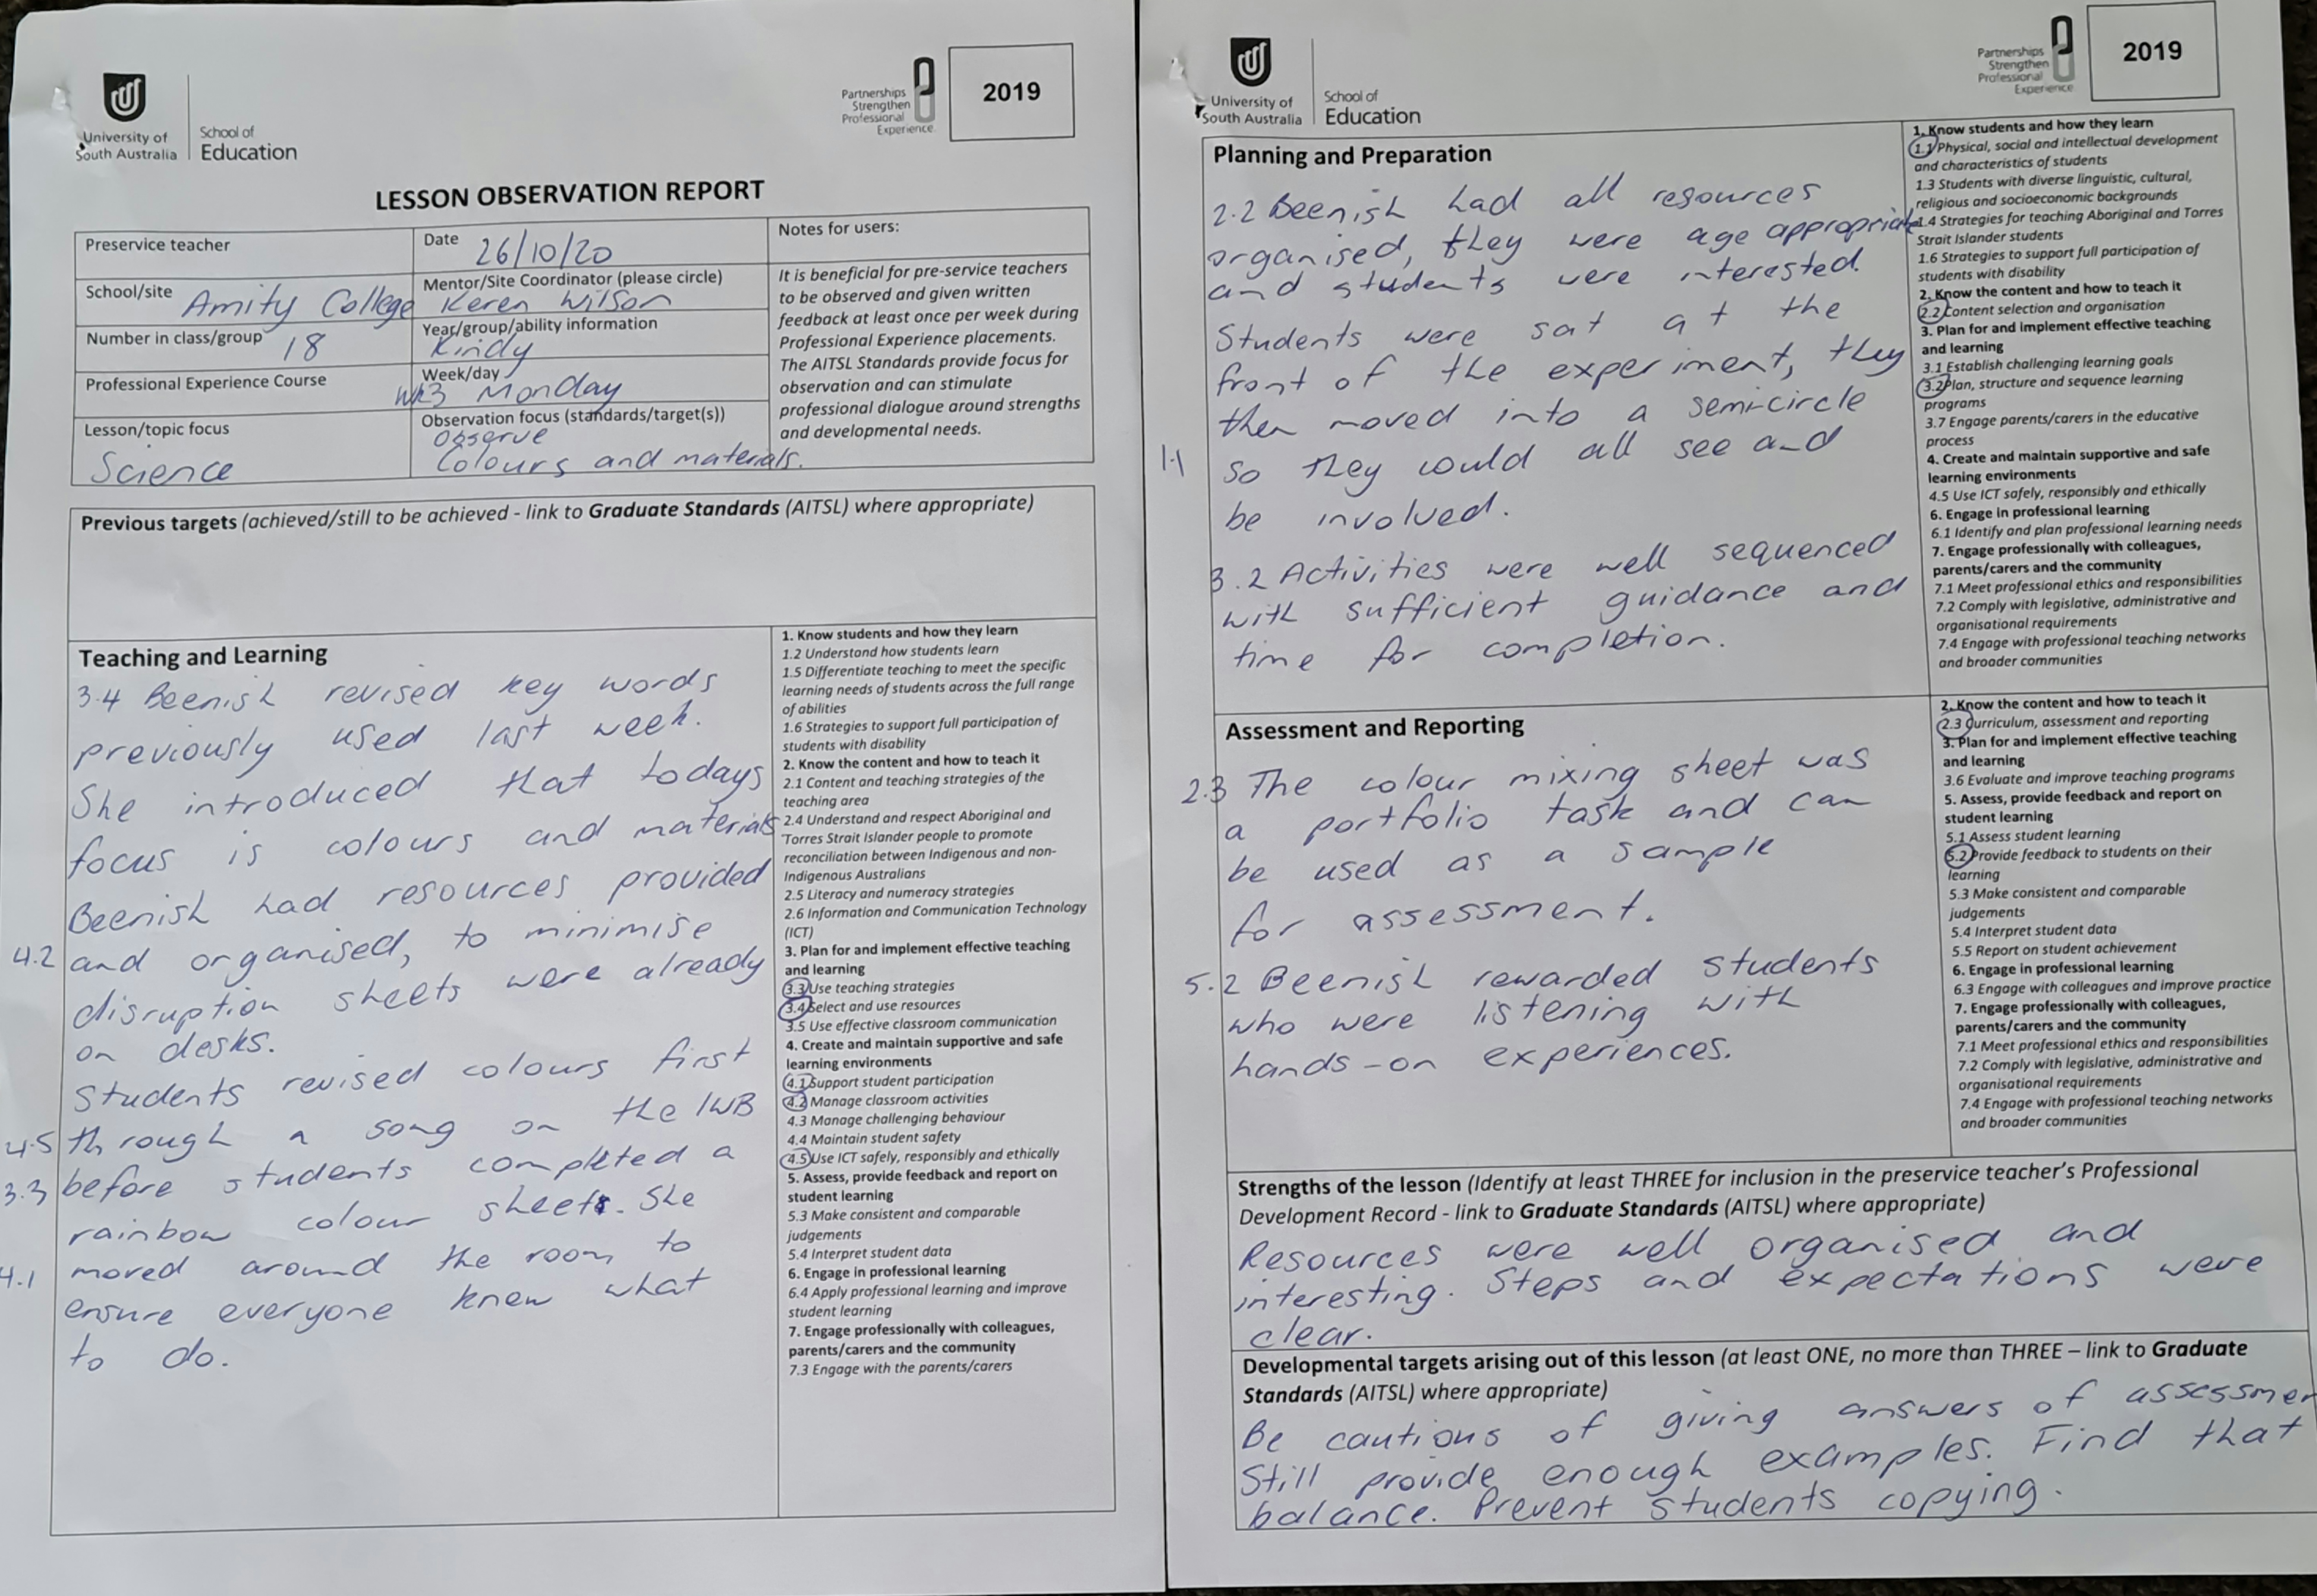 University of
South Australia
School of
Education
Partnerships
Strengthen
Professional
Experience
2019
LESSON OBSERVATION REPORT
Preservice teacher
Date 26/10/20
School/site Amity College
Mentor/Site Coordinator (please circle)
Keren Wilson
Number in class/group 18
Year/group/ability information
Kindy
Professional Experience Course
Week/day
Wk3 Monday
Lesson/topic focus
Science
Observation focus (standards/target(s))
Observe
Colours and materials.
Notes for users:
It is beneficial for pre-service teachers
to be observed and given written
feedback at least once per week during
Professional Experience placements.
The AITSL Standards provide focus for
observation and can stimulate
professional dialogue around strengths
and developmental needs.
Previous targets (achieved/still to be achieved - link to Graduate Standards (AITSL) where appropriate)
Teaching and Learning
3.4 Beenish revised key words
previously used last week.
She introduced that todays
focus is colours and materials
Beenish had resources provided
4.2 and organised, to minimise
disruption sheets were already
on desks.
Students revised colours first
4.5 through a song on the IWB
3.3 before students completed a
rainbow colour sheet. She
4.1 moved around the room to
ensure everyone knew what
to do.
1. Know students and how they learn
1.2 Understand how students learn
1.5 Differentiate teaching to meet the specific
learning needs of students across the full range
of abilities
1.6 Strategies to support full participation of
students with disability
2. Know the content and how to teach it
2.1 Content and teaching strategies of the
teaching area
2.4 Understand and respect Aboriginal and
Torres Strait Islander people to promote
reconciliation between Indigenous and non-
Indigenous Australians
2.5 Literacy and numeracy strategies
2.6 Information and Communication Technology
(ICT)
3. Plan for and implement effective teaching
and learning
3.3 Use teaching strategies
3.4 Select and use resources
3.5 Use effective classroom communication
4. Create and maintain supportive and safe
learning environments
4.1 Support student participation
4.2 Manage classroom activities
4.3 Manage challenging behaviour
4.4 Maintain student safety
4.5 Use ICT safely, responsibly and ethically
5. Assess, provide feedback and report on
student learning
5.3 Make consistent and comparable
judgements
5.4 Interpret student data
6. Engage in professional learning
6.4 Apply professional learning and improve
student learning
7. Engage professionally with colleagues,
parents/carers and the community
7.3 Engage with the parents/carers
University of
South Australia
School of
Education
Partnerships
Strengthen
Professional
Experience
2019
Planning and Preparation
2.2 Beenish had all resources
organised, they were age appropriate
and students were interested.
Students were sat at the
front of the experiment, they
then moved into a semi-circle
1.1 so they could all see and
be involved.
3.2 Activities were well sequenced
with sufficient guidance and
time for completion.
1. Know students and how they learn
1.1 Physical, social and intellectual development
and characteristics of students
1.3 Students with diverse linguistic, cultural,
religious and socioeconomic backgrounds
1.4 Strategies for teaching Aboriginal and Torres
Strait Islander students
1.6 Strategies to support full participation of
students with disability
2. Know the content and how to teach it
2.2 Content selection and organisation
3. Plan for and implement effective teaching
and learning
3.1 Establish challenging learning goals
3.2 Plan, structure and sequence learning
programs
3.7 Engage parents/carers in the educative
process
4. Create and maintain supportive and safe
learning environments
4.5 Use ICT safely, responsibly and ethically
6. Engage in professional learning
6.1 Identify and plan professional learning needs
7. Engage professionally with colleagues,
parents/carers and the community
7.1 Meet professional ethics and responsibilities
7.2 Comply with legislative, administrative and
organisational requirements
7.4 Engage with professional teaching networks
and broader communities
Assessment and Reporting
2.3 The colour mixing sheet was
a portfolio task and can
be used as a sample
for assessment.
5.2 Beenish rewarded students
who were listening with
hands-on experiences.
2. Know the content and how to teach it
2.3 Curriculum, assessment and reporting
3. Plan for and implement effective teaching
and learning
3.6 Evaluate and improve teaching programs
5. Assess, provide feedback and report on
student learning
5.1 Assess student learning
5.2 Provide feedback to students on their
learning
5.3 Make consistent and comparable
judgements
5.4 Interpret student data
5.5 Report on student achievement
6. Engage in professional learning
6.3 Engage with colleagues and improve practice
7. Engage professionally with colleagues,
parents/carers and the community
7.1 Meet professional ethics and responsibilities
7.2 Comply with legislative, administrative and
organisational requirements
7.4 Engage with professional teaching networks
and broader communities
Strengths of the lesson (Identify at least THREE for inclusion in the preservice teacher's Professional
Development Record - link to Graduate Standards (AITSL) where appropriate)
Resources were well organised and
interesting. Steps and expectations were
clear.
Developmental targets arising out of this lesson (at least ONE, no more than THREE – link to Graduate
Standards (AITSL) where appropriate)
Be cautions of giving answers of assessmen
Still provide enough examples. Find that
balance. Prevent students copying.